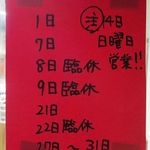 1日 主 4日
7日 日曜日
営業!!
8日 臨休
9日 臨休
21日
22日 臨休
27日 ～ 31日